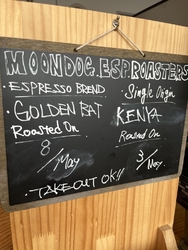 MOONDOG.ESP.ROASTERS
· ESPRESSO BREND
· Single Origin
· GOLDEN RAT
KENYA
Roasted On
Roasted On
8/May
3/May
· TAKE OUT OK!!